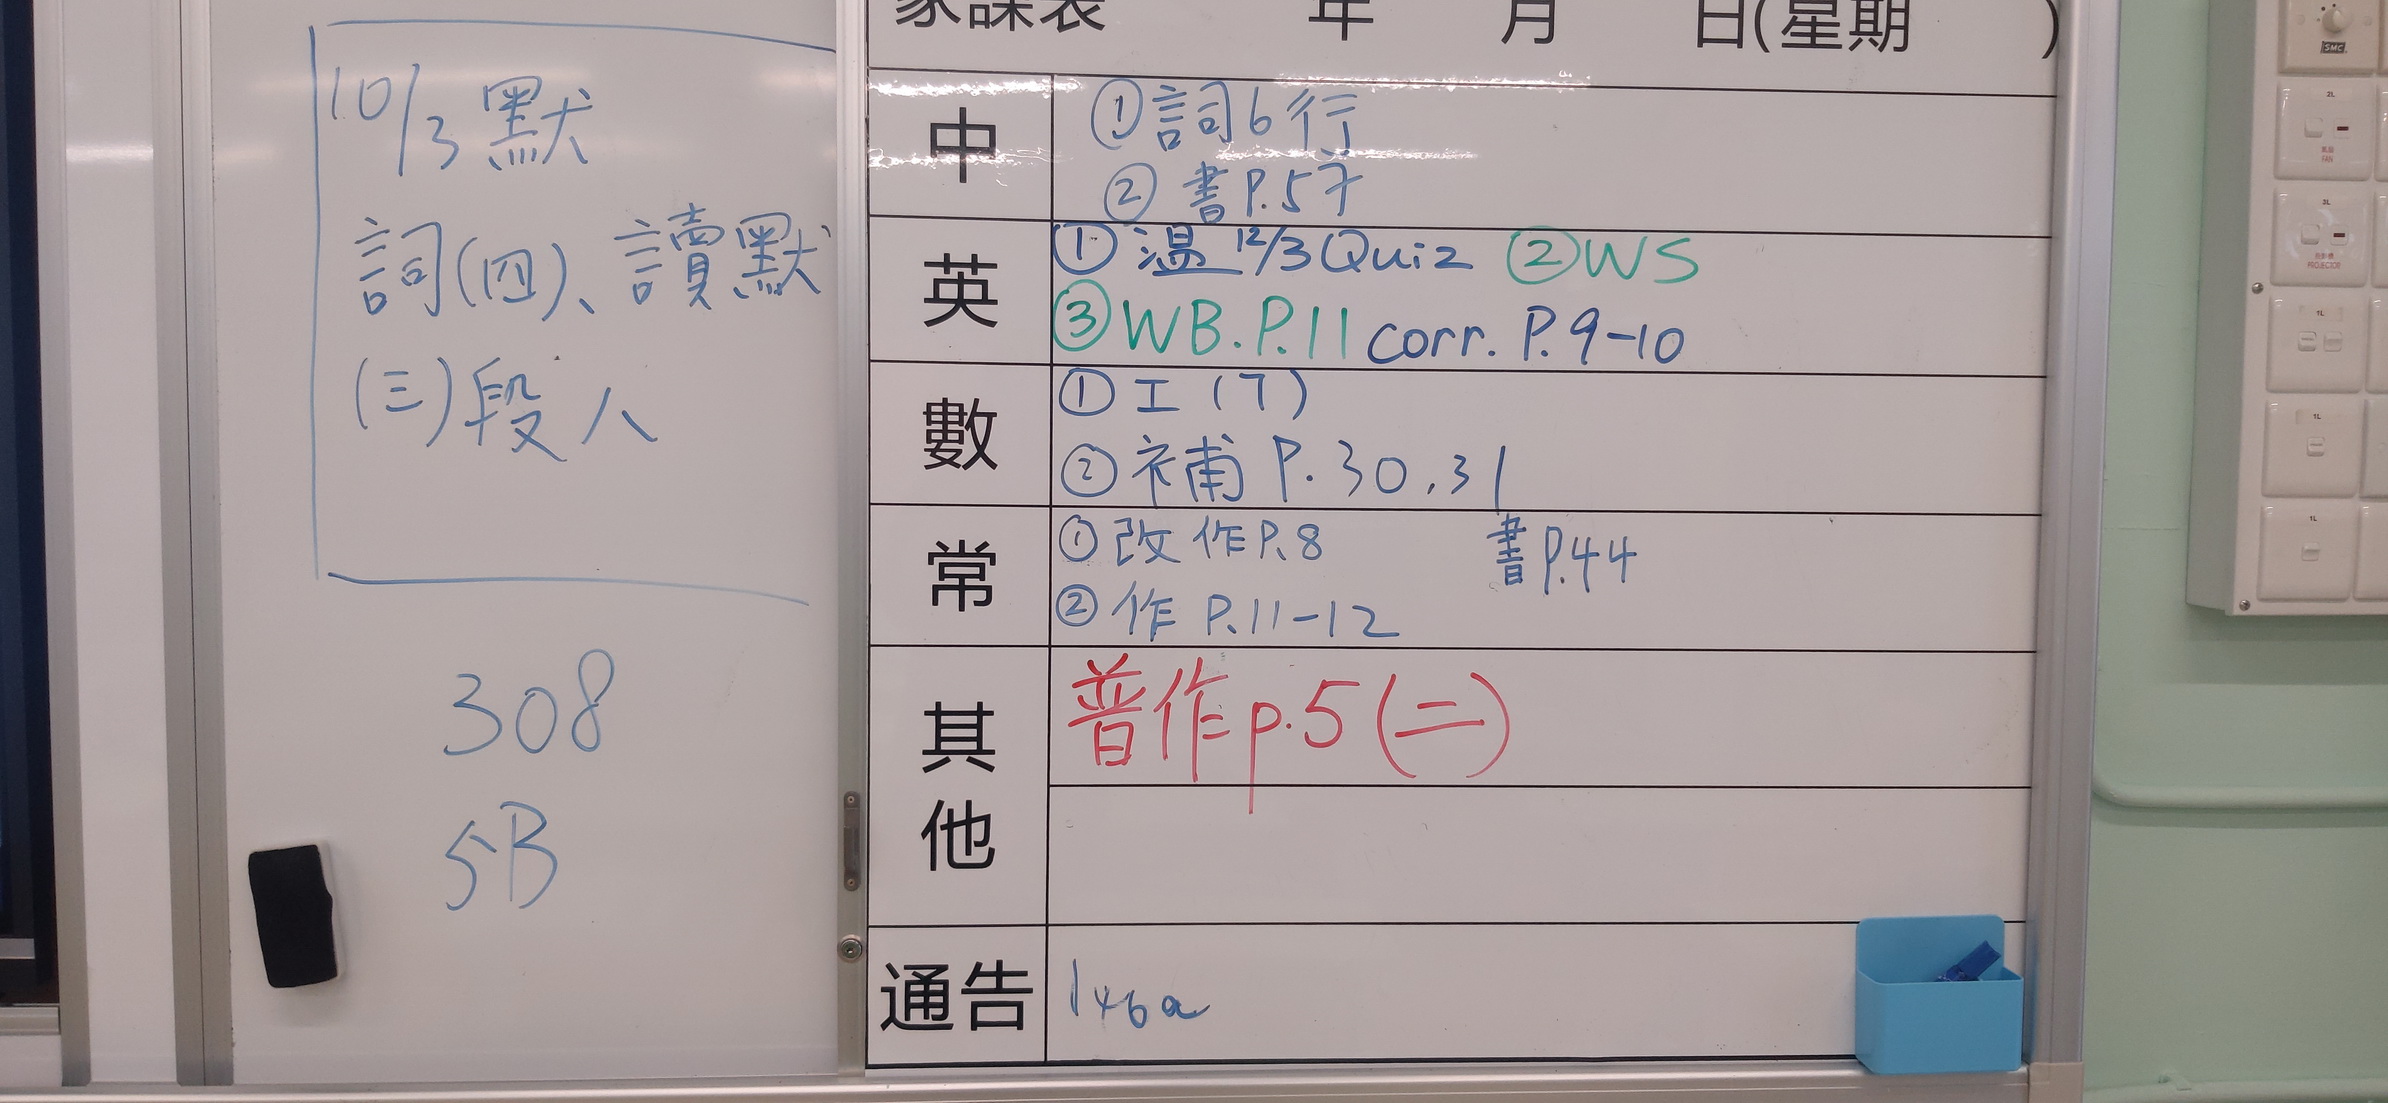 10/3 默
詞(四)、讀默
(三)段八
308
5B
家課表 年 月 日(星期 )
中
①詞6行
②書P.57
英
①溫12/3Quiz ②WS
③WB.P.11 corr. P.9-10
數
①工(7)
②補 P.30,31
常
①改作P.8 書P.44
②作 P.11-12
其他
普作p.5(二)
通告
146a
SMC
2L
FAN
3L
PROJECTOR
1L
1L
1L